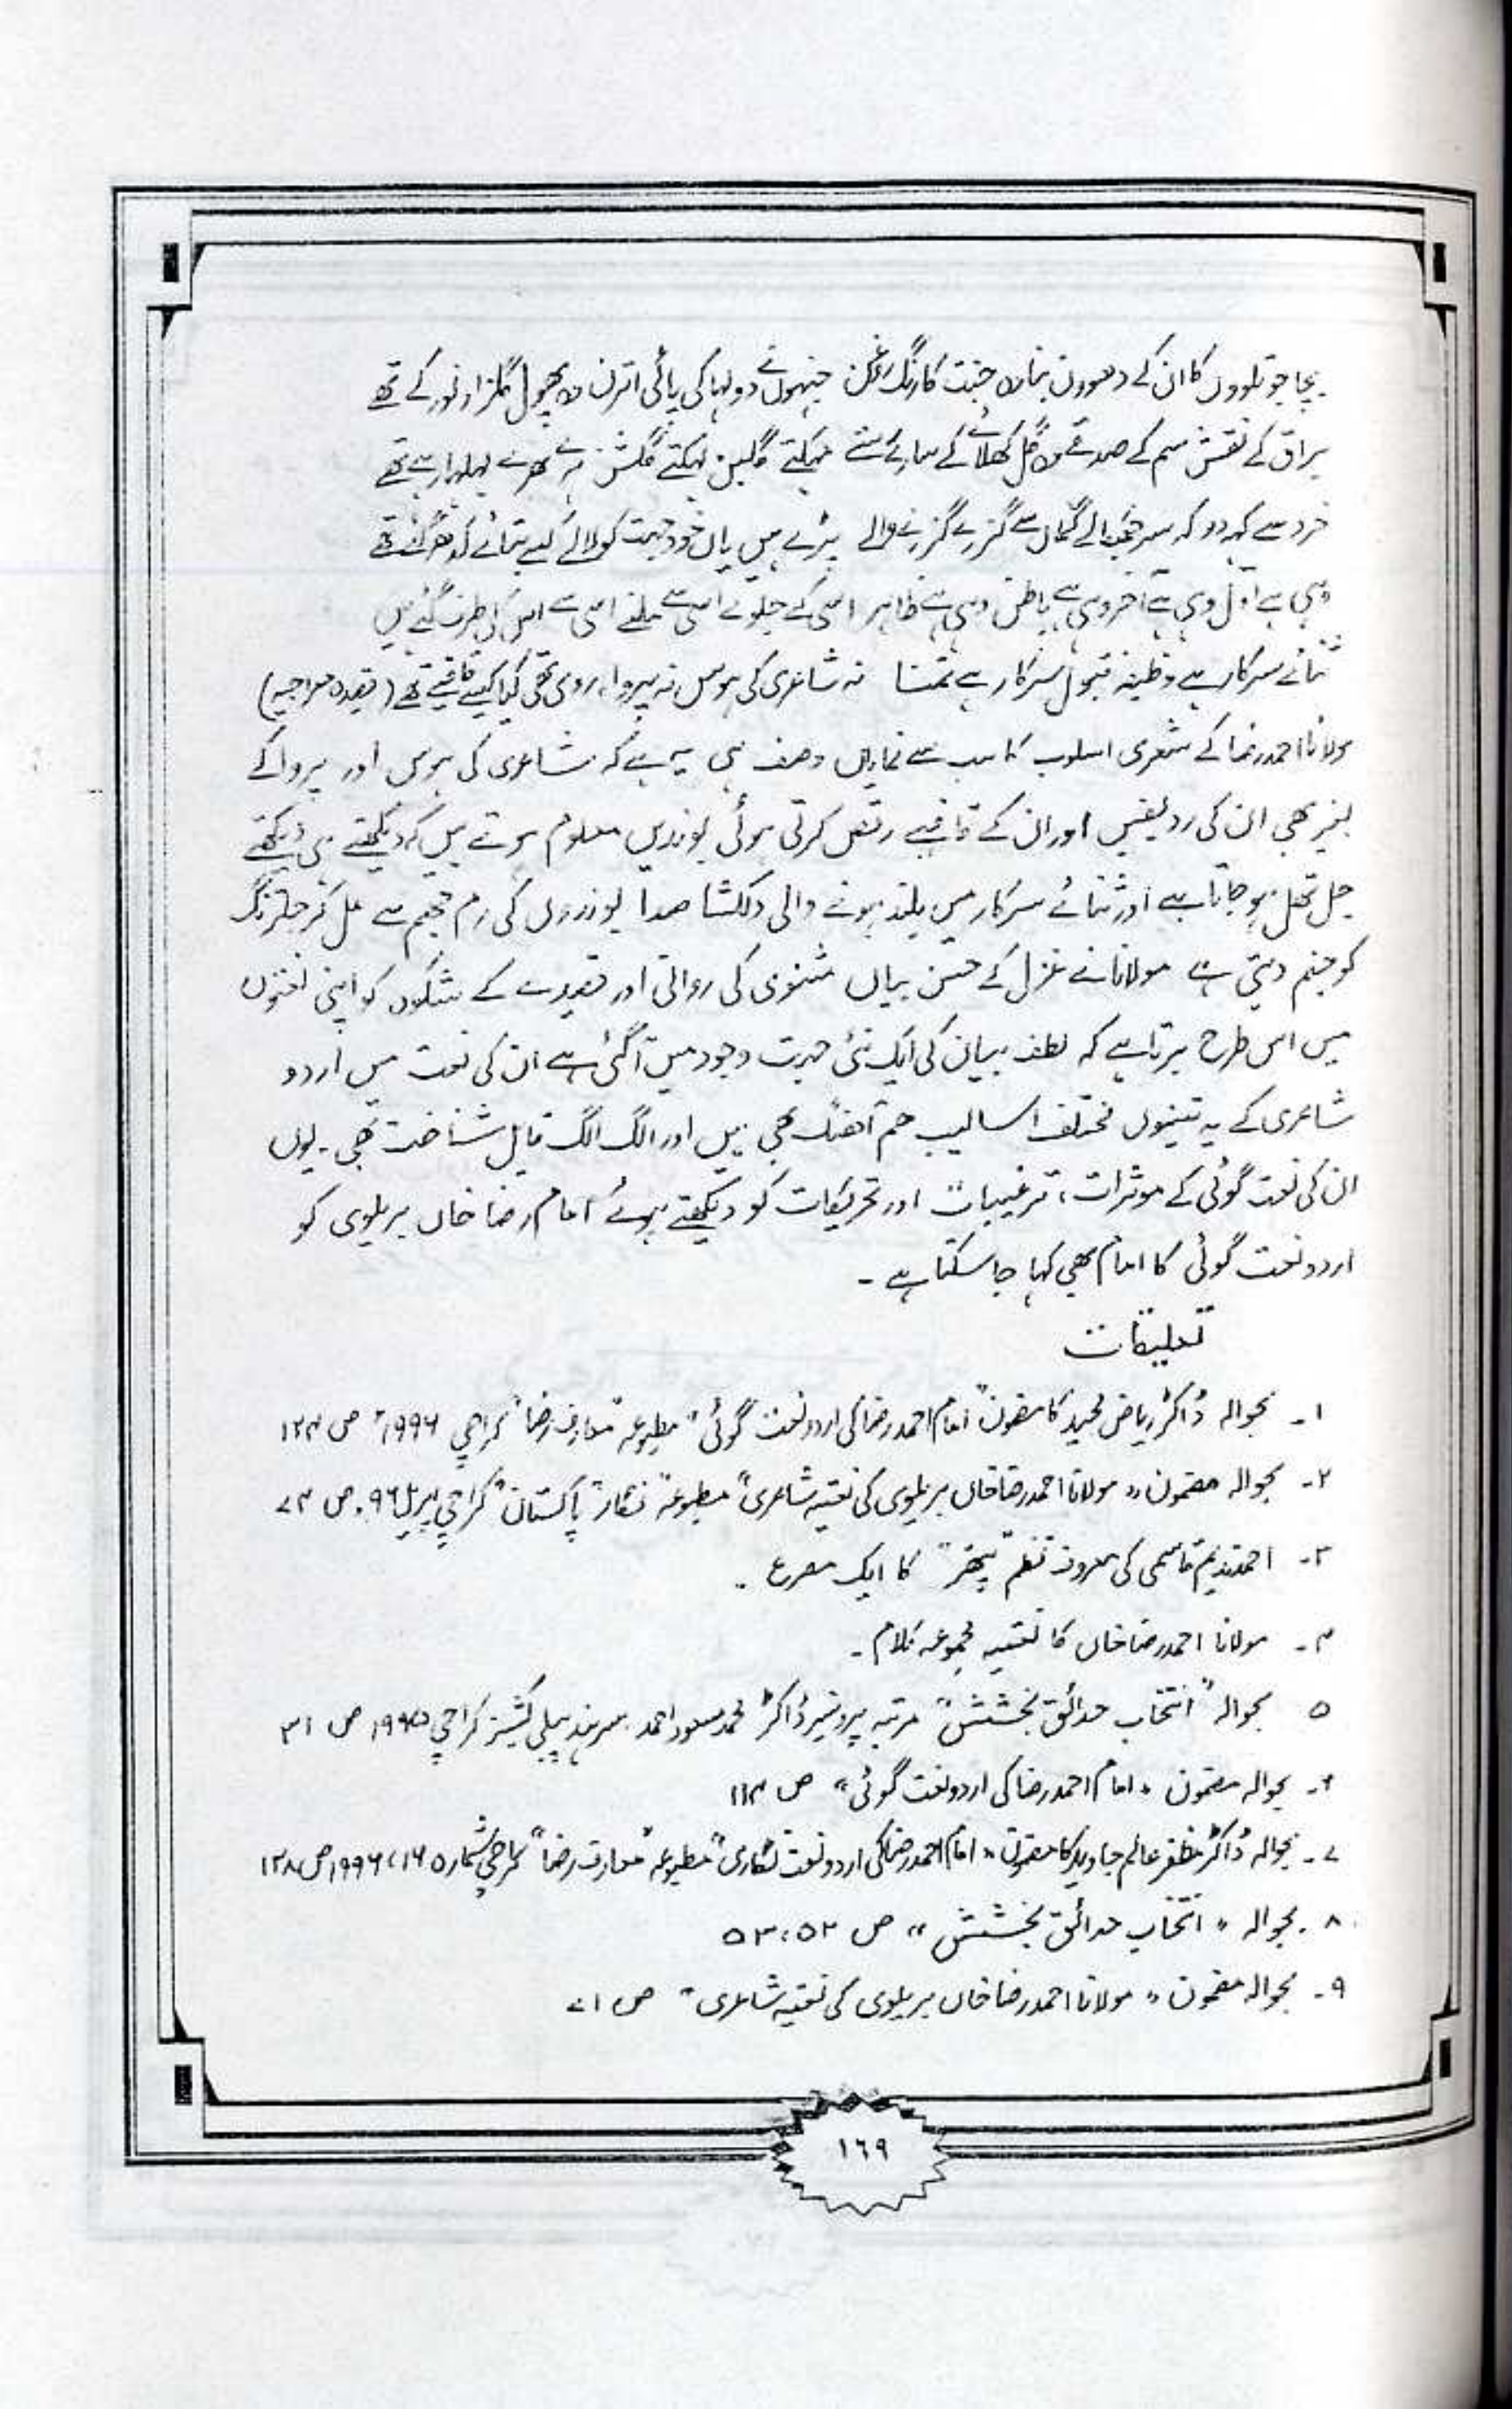 بچا جو تلووں کا ان کے دھوون بنا وہ جنت کا رنگ و روغن جنہوں نے دولہا کی پائی اترن وہ پھول گلزار نور کے تھے
براق کے نقش سم کے صدقے وہ گل کھلائے کے سارے رستے مہکتے گلبن لہکتے گلشن ہرے بھرے لہلہا رہے تھے
خرد سے کہہ دو کہ سر جھکالے گماں سے گزرے گزرنے والے پڑے ہیں یاں خود جہت کو لالے کسے بتائے کدھر گئے تھے
وہی ہے اول وہی ہے آخر وہی ہے باطن وہی ہے ظاہر اسی کے جلوے اسی سے ملنے اسی سے اس کی طرف گئے ہیں
ثنائے سرکار ہے وظیفہ قبول سرکار ہے تمنا نہ شاعری کی ہوس نہ پروا، ردی تھی کیا کیسے قافیے تھے (قصیدہ معراجیہ)
مولانا احمد رضا کے شعری اسلوب کا سب سے نمایاں وصف ہی یہ ہے کہ شاعری کی ہوس اور پروا کے
بغیر بھی ان کی ردیفیں اور ان کے قافیے رقص کرتی ہوئی بوندیں معلوم ہوتے ہیں کہ دیکھتے ہی دیکھتے
جل تھل ہو جاتا ہے اور ثنائے سرکار میں بلند ہونے والی دلکشا صدا بوندوں کی رم جھم سے مل کر جلترنگ
کو جنم دیتی ہے مولانا نے غزل کے حسن بیاں مثنوی کی روانی اور قصیدے کے شکوہ کو اپنی نعتوں
میں اس طرح برتا ہے کہ لطف بیان کی ایک نئی جہت وجود میں آگئی ہے ان کی نعت میں اردو
شاعری کے یہ تینوں مختلف اسالیب ہم آھنگ بھی ہیں اور الگ الگ قابل شناخت بھی۔ یوں
ان کی نعت گوئی کے موثرات، ترغیبات اور تحریکات کو دیکھتے ہوئے امام رضا خاں بریلوی کو
اردو نعت گوئی کا امام بھی کہا جا سکتا ہے۔
تعلیقات
۱۔ بحوالہ ڈاکٹر ریاض مجید کا مضمون "امام احمد رضا کی اردو نعت گوئی" مطبوعہ "معارف رضا" کراچی ۱۹۹۶ء ص ۱۲۴
۲۔ بحوالہ مضمون "مولانا احمد رضا خاں بریلوی کی نعتیہ شاعری" مطبوعہ "نگار پاکستان" کراچی اپریل ۹۶ء ص ۷۴
۳۔ احمد ندیم قاسمی کی معروف نظم "پتھر" کا ایک مصرع ۔
۴۔ مولانا احمد رضا خاں کا نعتیہ مجموعہ کلام۔
۵ بحوالہ "انتخاب حدائق بخشش" مرتبہ پروفیسر ڈاکٹر محمد مسعود احمد سرہند پبلی کیشنز کراچی ۱۹۹۵ ص ۳۱
۶۔ بحوالہ مضمون "امام احمد رضا کی اردو نعت گوئی" ص ۱۱۴
۷۔ بحوالہ ڈاکٹر مظفر عالم جاوید کا مضمون "امام احمد رضا کی اردو نعت نگاری" مطبوعہ "معارف رضا" کراچی شمارہ ۱۶، ۱۹۹۶ ص ۱۳۸
۸۔ بحوالہ "انتخاب حدائق بخشش" ص ۵۲، ۵۳
۹۔ بحوالہ مضمون "مولانا احمد رضا خاں بریلوی کی نعتیہ شاعری" ص ۷۱
۱۶۹